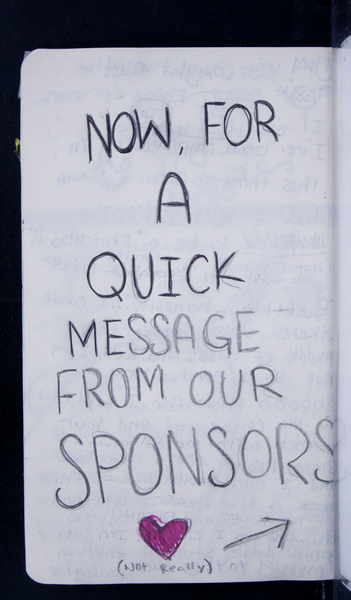 NOW FOR
A
QUICK
MESSAGE
FROM OUR
SPONSORS
(Not Really)